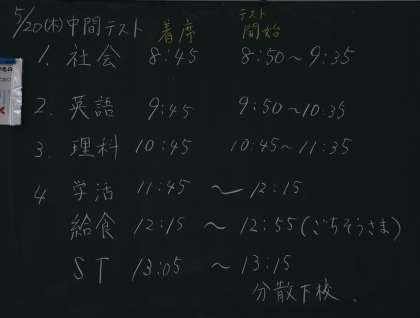 5/20(木)中間テスト 着席 テスト開始
1. 社会 8:45 8:50〜9:35
2. 英語 9:45 9:50〜10:35
3. 理科 10:45 10:45〜11:35
4 学活 11:45 〜 12:15
給食 12:15 〜 12:55(ごちそうさま)
ST 13:05 〜 13:15
分散下校、